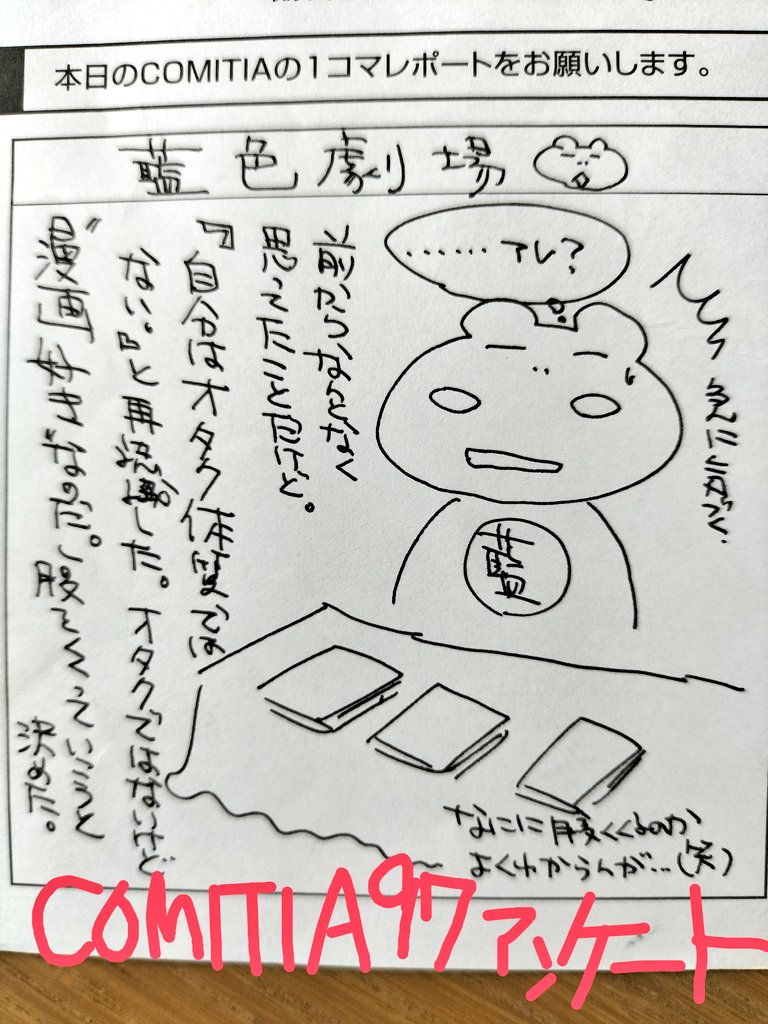 本日のCOMITIAの1コマレポートをお願いします。
藍色劇場
……アレ?
急に気づく。
前からなんとなく
思ってたこと だけど。
『自分はオタク体質では
ない。』と再認識した。オタクではないけど
"漫画好き"なのだ。と腹をくくっていこうと
決めた。
藍
なにに腹くくるのか
よくわからんが…(笑)
COMITIA97アンケート